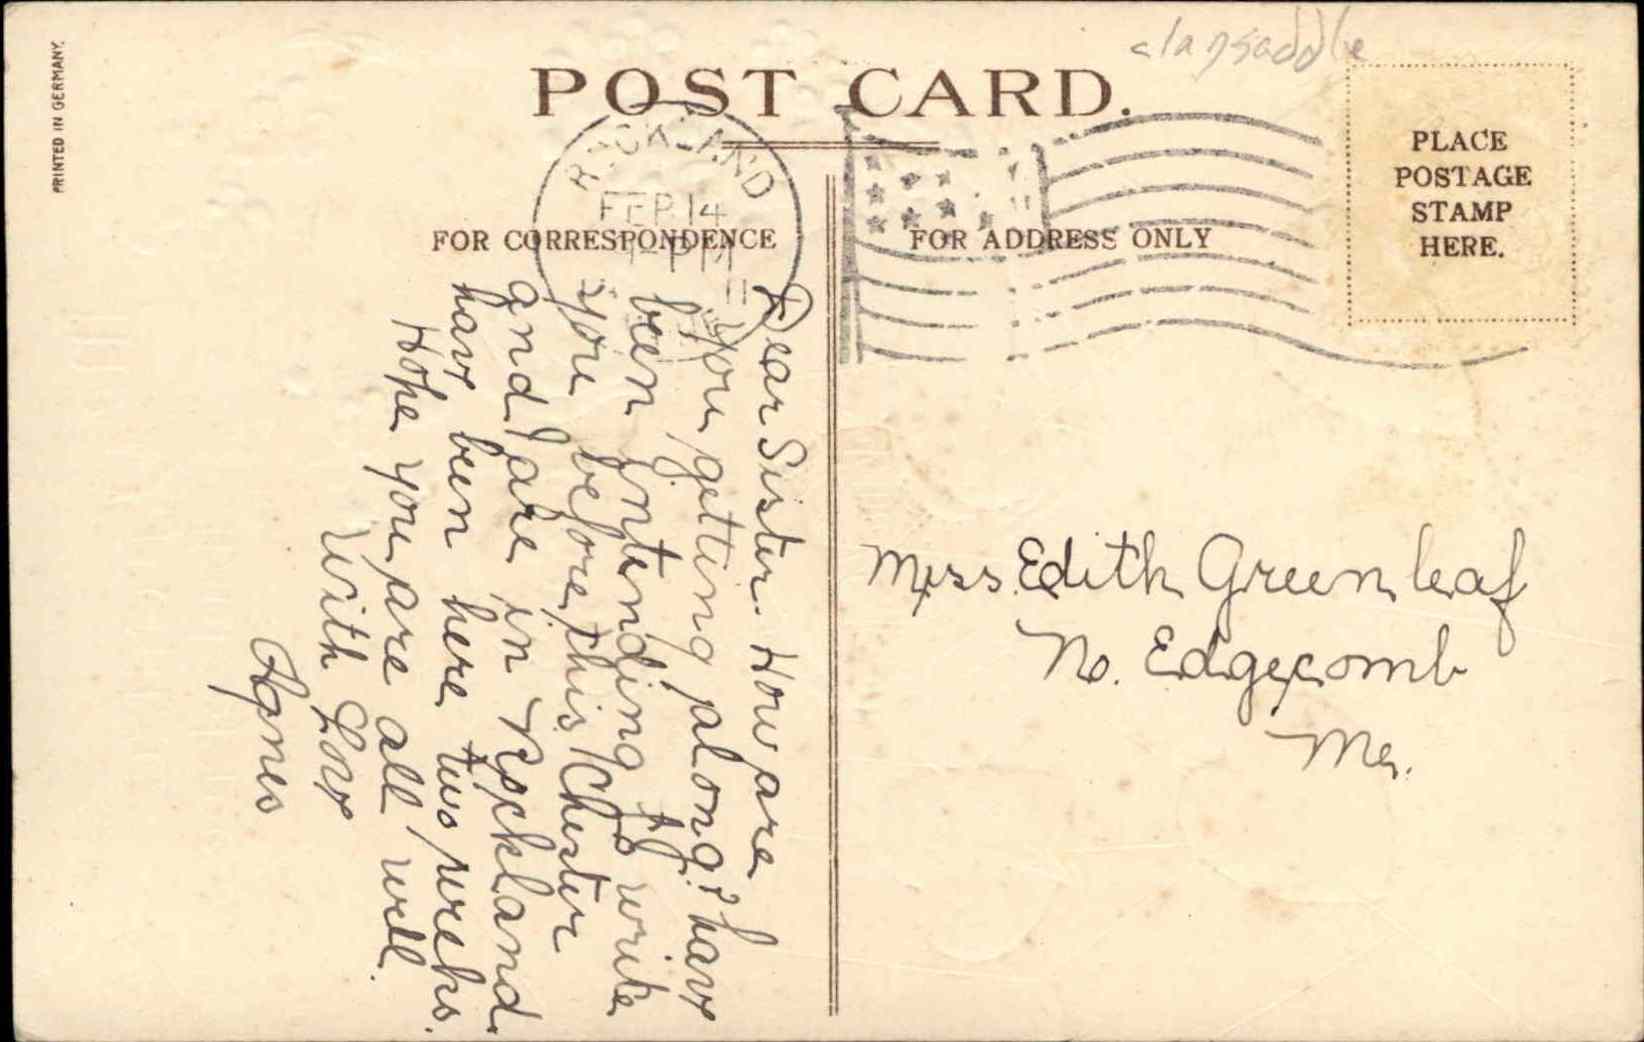 PRINTED IN GERMANY.
POST CARD.
PLACE
POSTAGE
STAMP
HERE.
ROCKLAND
FEB 14
PM
11
FOR CORRESPONDENCE
FOR ADDRESS ONLY
Dear Sister. How are
you getting along? have
been intending to write
you before this Chester
and I are in Rockland
have been here two weeks.
Hope you are all well.
With Love
Agnes
Miss. Edith Greenleaf
No. Edgecomb
Me.